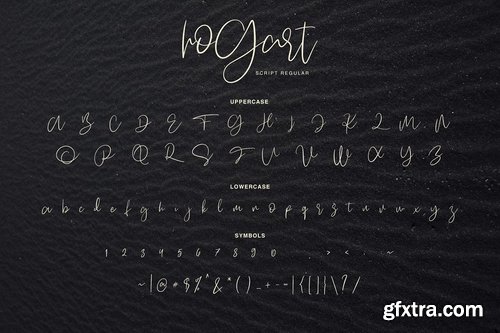 hogart
SCRIPT REGULAR
UPPERCASE
A B C D E F G H I J K L M N
O P Q R S T U V W X Y Z
LOWERCASE
a b c d e f g h i j k l m n o p q r s t u v w x y z
SYMBOLS
1 2 3 4 5 6 7 8 9 0 . , > < . : ~
~ | @ # $ % ^ & * ( ) _ + - = | { [ ] } \ ? /
gfxtra.com